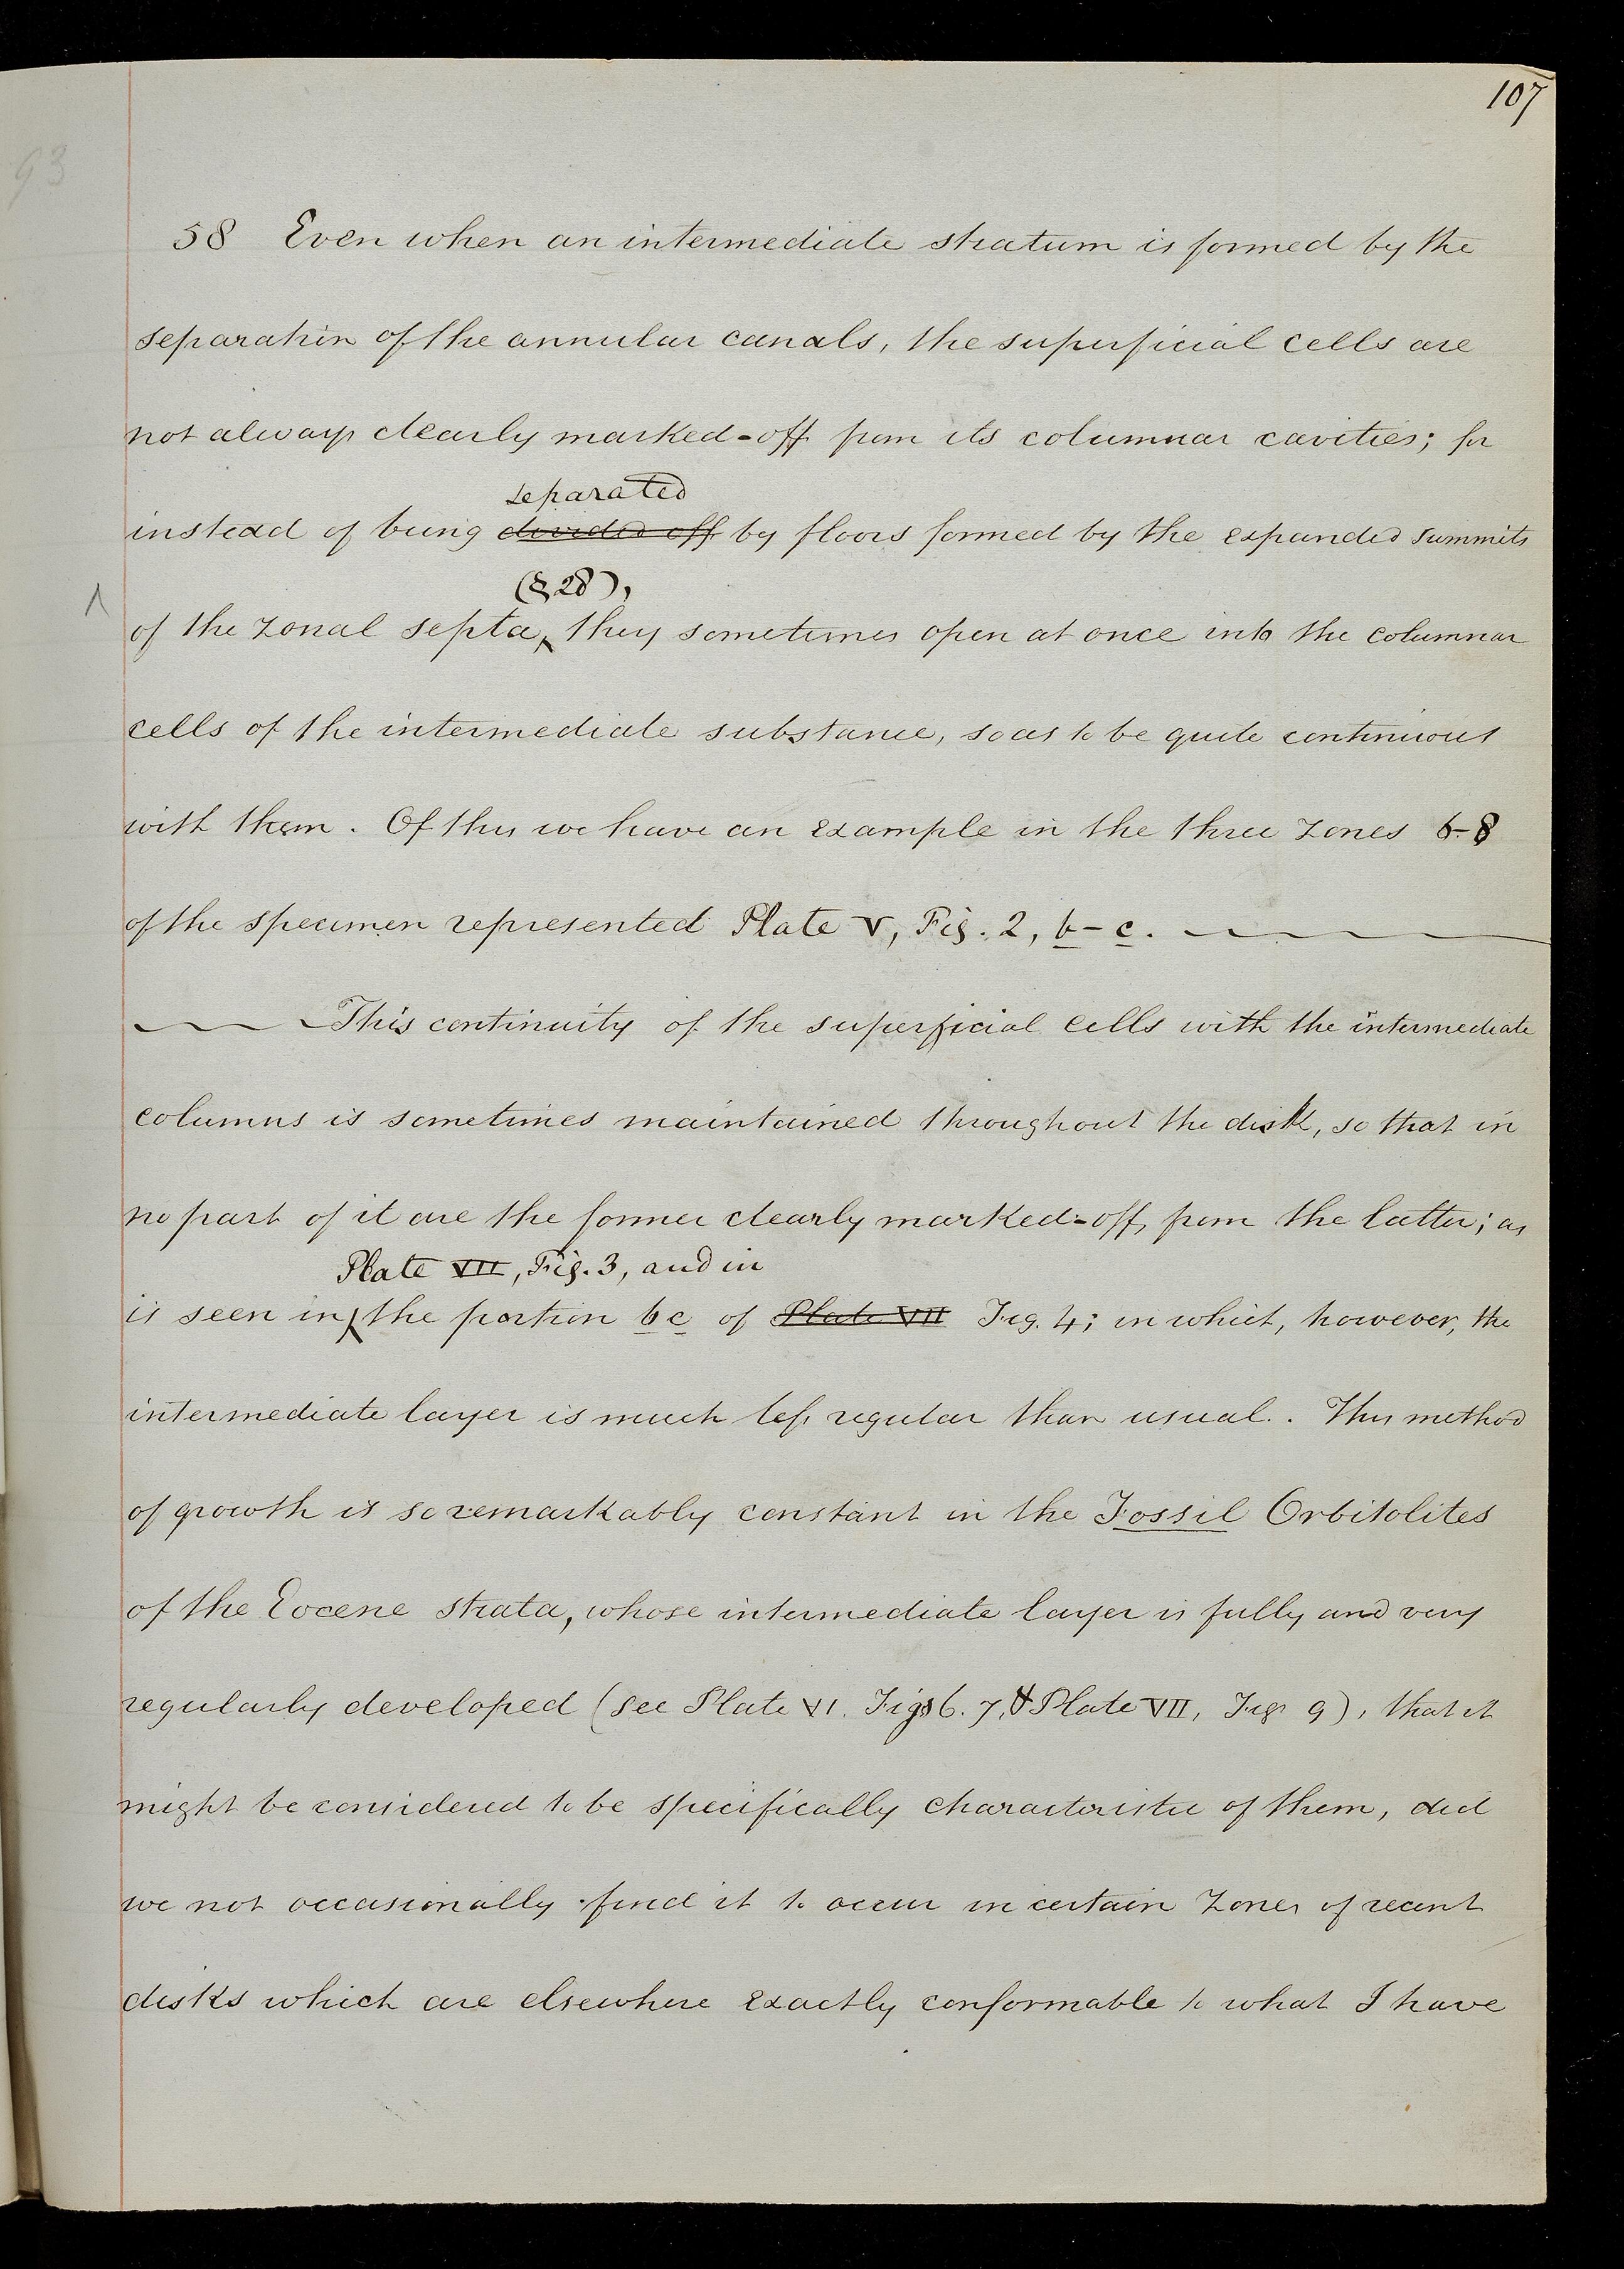 107
93
58 Even when an intermediate stratum is formed by the
separation of the annular canals, the superficial cells are
not always clearly marked-off from its columnar cavities; for
separated
instead of being divided off by floors formed by the expanded summits
(§ 28),
of the zonal septa, they sometimes open at once into the columnar
cells of the intermediate substance, so as to be quite continuous
with them. Of this we have an example in the three zones 6-8
of the specimen represented Plate V, Fig. 2, b-c.
This continuity of the superficial cells with the intermediate
columns is sometimes maintained throughout the disk, so that in
no part of it are the former clearly marked-off from the latter; as
Plate VII, Fig. 3, and in
is seen in the portion b c of Plate VII Fig. 4; in which, however, the
intermediate layer is much less regular than usual. This method
of growth is so remarkably constant in the Fossil Orbitolites
of the Eocene strata, whose intermediate layer is fully and very
regularly developed (see Plate VI. Figs 6. 7, & Plate VII, Fig 9), that it
might be considered to be specifically characteristic of them, did
we not occasionally find it to occur in certain zones of recent
disks which are elsewhere exactly conformable to what I have